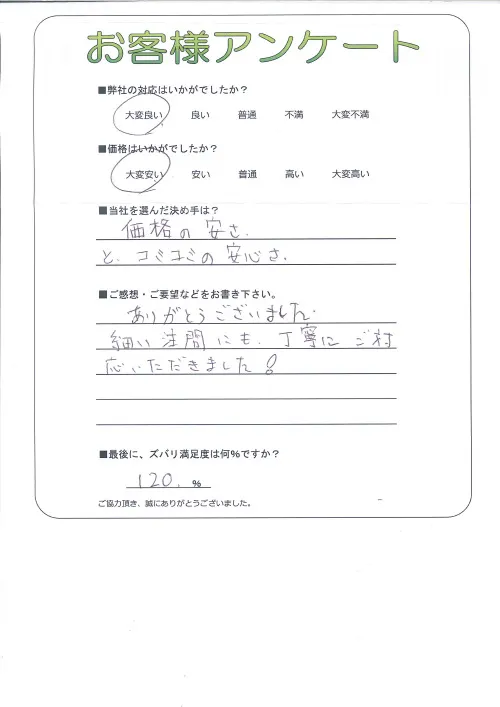 お客様アンケート
■弊社の対応はいかがでしたか？
大変良い 良い 普通 不満 大変不満
■価格はいかがでしたか？
大変安い 安い 普通 高い 大変高い
■当社を選んだ決め手は？
価格の安さ.
と、コミコミの安心さ.
■ご感想・ご要望などをお書き下さい。
ありがとうございました.
細い注問にも、丁寧にご対
応いただきました！
■最後に、ズバリ満足度は何％ですか？
120. ％
ご協力頂き、誠にありがとうございました。